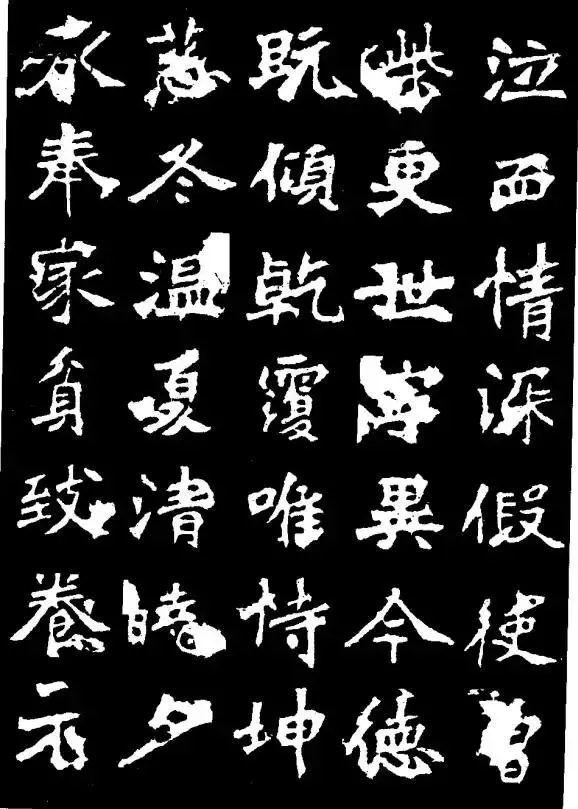 泣血情深假使曾
柴更世寧異今德
既傾乾覆唯恃坤
慈冬温夏清曉夕
承奉家貧致養不